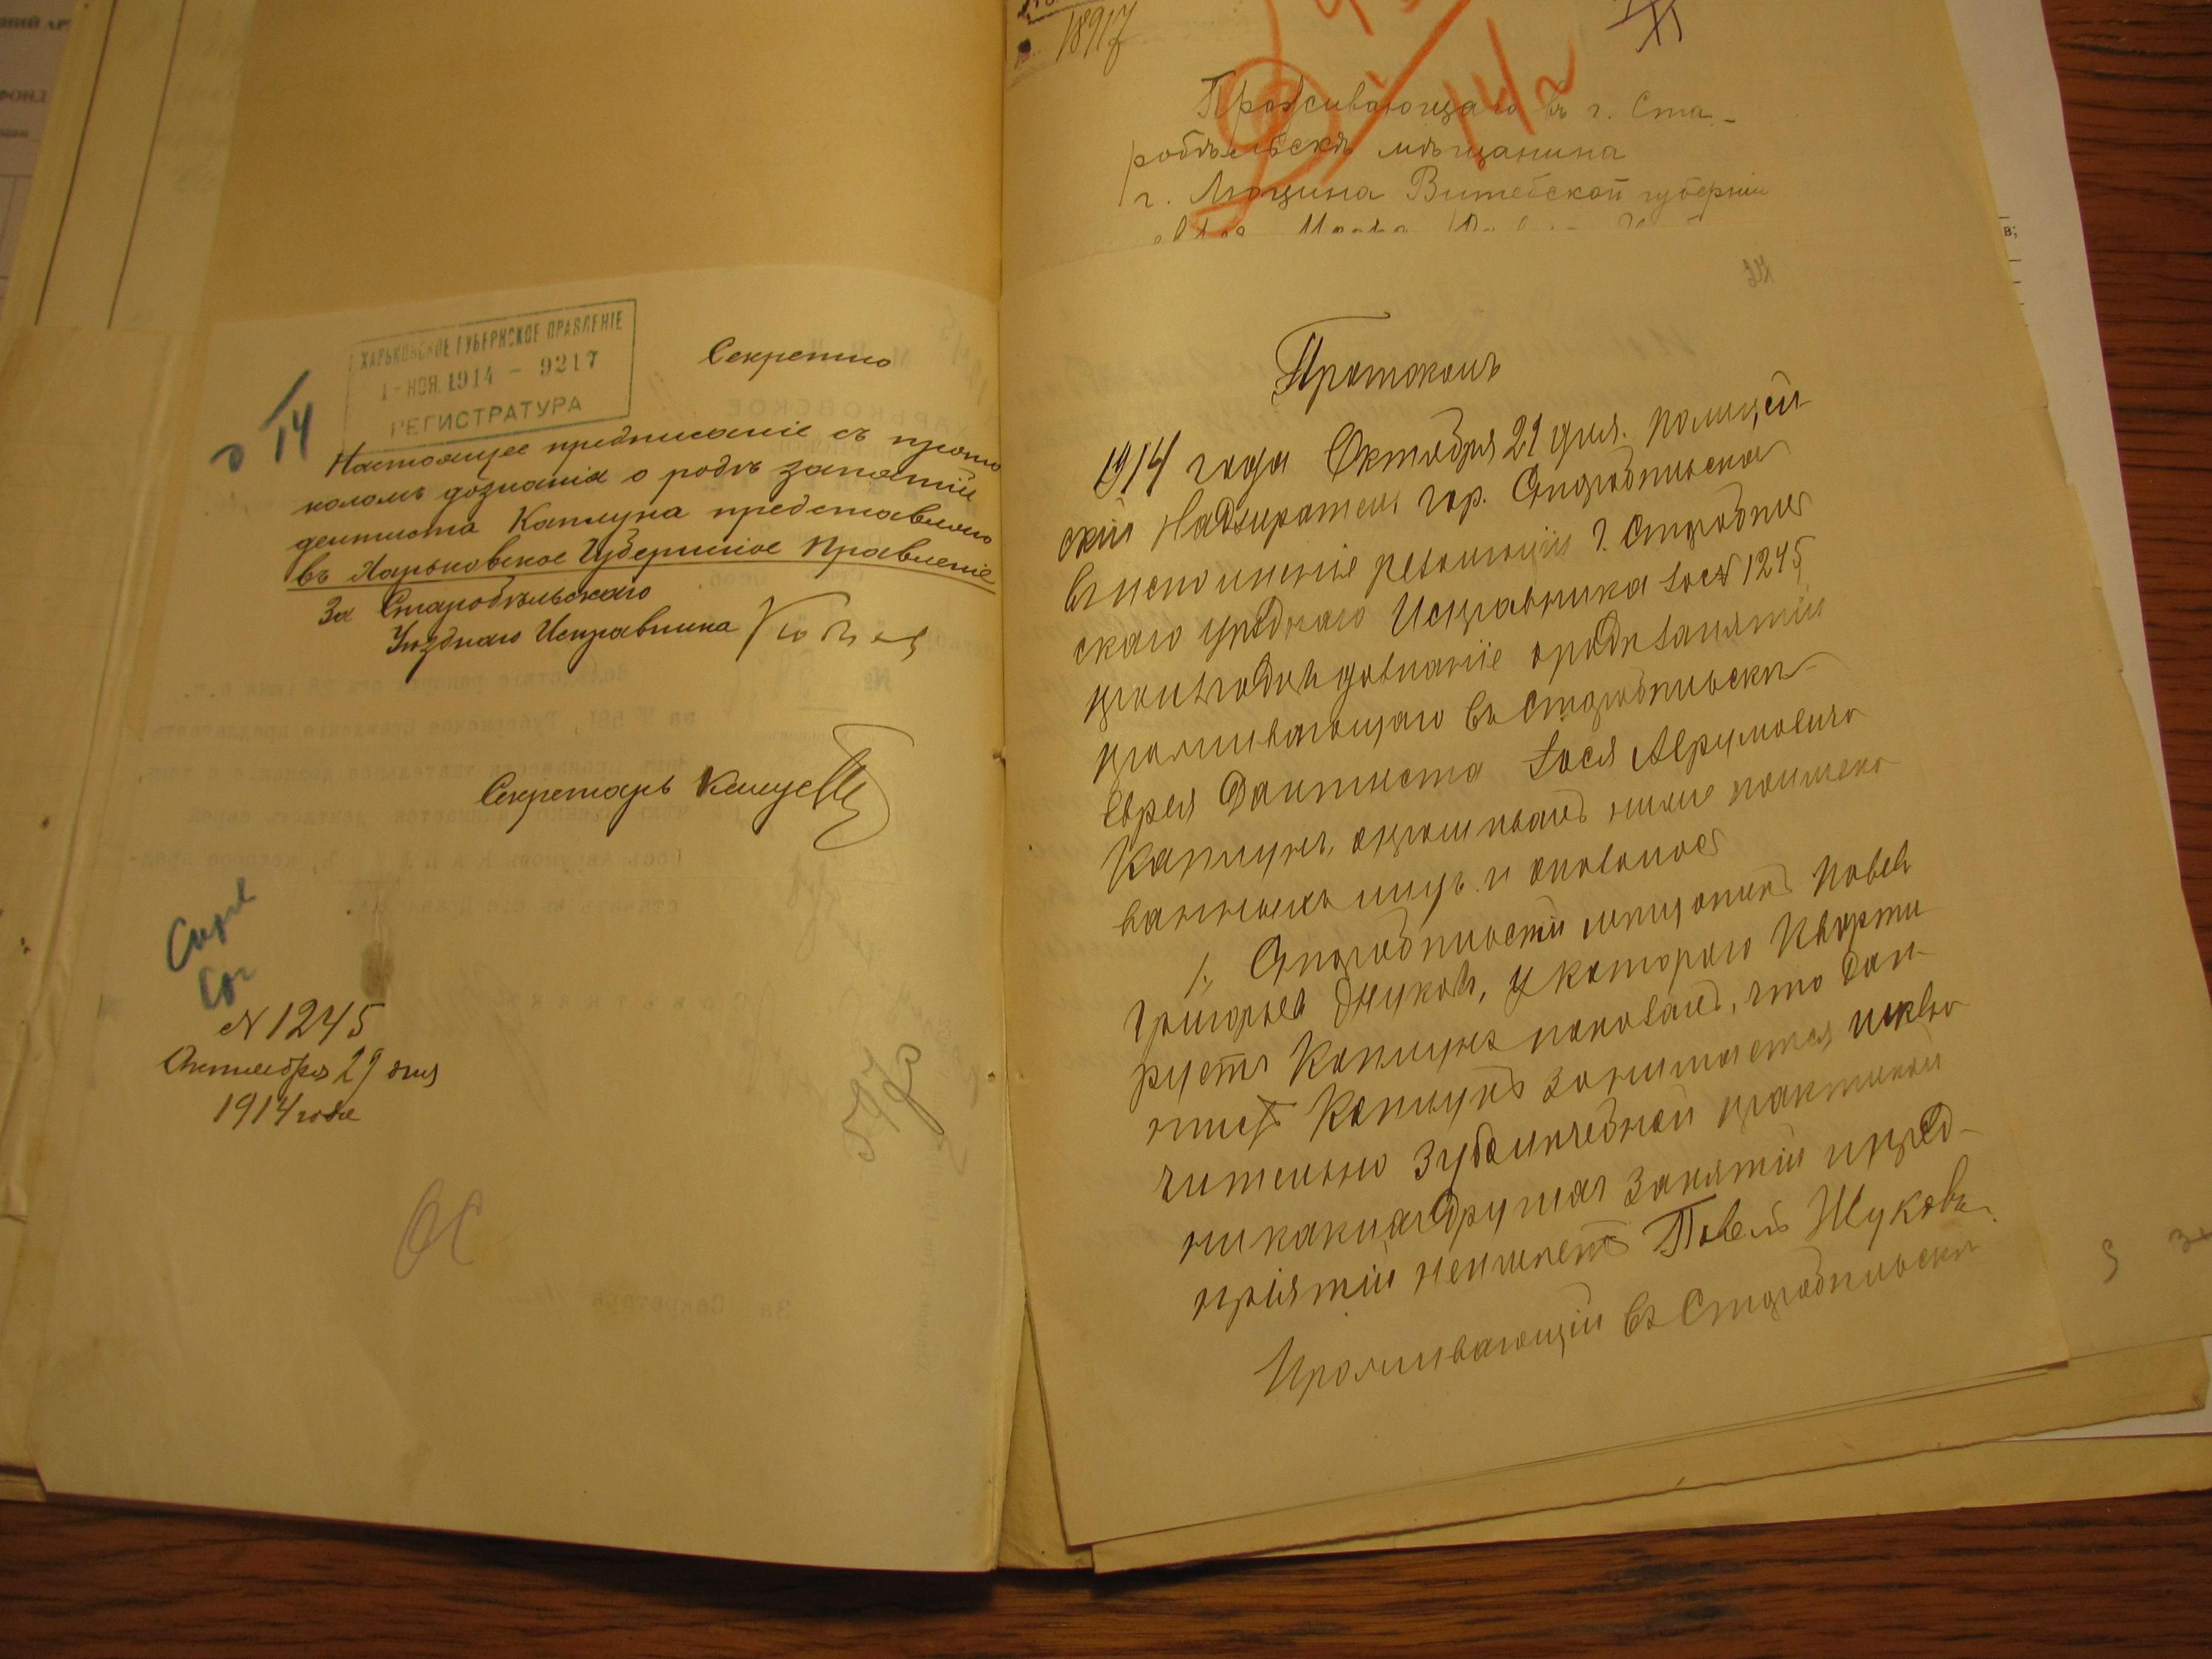 ХАРЬКОВСКОЕ ГУБЕРНСКОЕ ПРАВЛЕНІЕ
1 - НОЯ. 1914 - 9217
РЕГИСТРАТУРА
Секретно
Настоящее предписаніе съ прото
коломъ дознанія о родѣ занятій
дентиста Каплуна представляю
въ Харьковское Губернское Правленіе
За Старобѣльскаго
Уѣзднаго Исправника
Секретарь
N 1245
Октября 29 дня
1914 года
597
За Секретаря
18917
Проживающаго въ г. Ста-
робѣльскѣ мѣщанина
г. Люцина Витебской губерніи
Протоколъ
1914 года Октября 29 дня. Полицей
скій Надзиратель гор. Старобѣльска
въ исполненіе резолюціи Г. Старобѣль
скаго уѣзднаго Исправника за № 1245
производилъ дознаніе о родѣ занятій
проживающаго въ Старобѣльскѣ
еврея Дантиста Іося Абрумовича
Каплуна, опрошивалъ ниже поимено
ванныхъ лицъ и оказалось
1, Старобѣльскій мѣщанинъ Павелъ
Григорьевъ Жуковъ, у котораго кварти
руетъ Каплунъ показалъ, что Дан-
тистъ Каплунъ занимается исклю
чительно зуболечебной практикой
никакихъ другихъ занятій и пред-
пріятій не имѣетъ Павелъ Жуковъ.
Проживающій въ Старобѣльскѣ